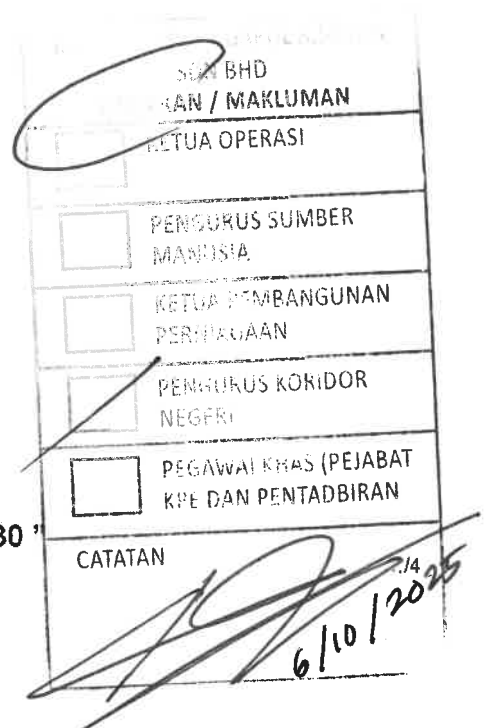 SDN BHD
/ MAKLUMAN
KETUA OPERASI
PENGURUS SUMBER
MANUSIA
KETUA PEMBANGUNAN
PERNIAGAAN
PENGURUS KORIDOR
NEGERI
PEGAWAI KHAS (PEJABAT
KPE DAN PENTADBIRAN
30 "
CATATAN
../4
6/10/2025